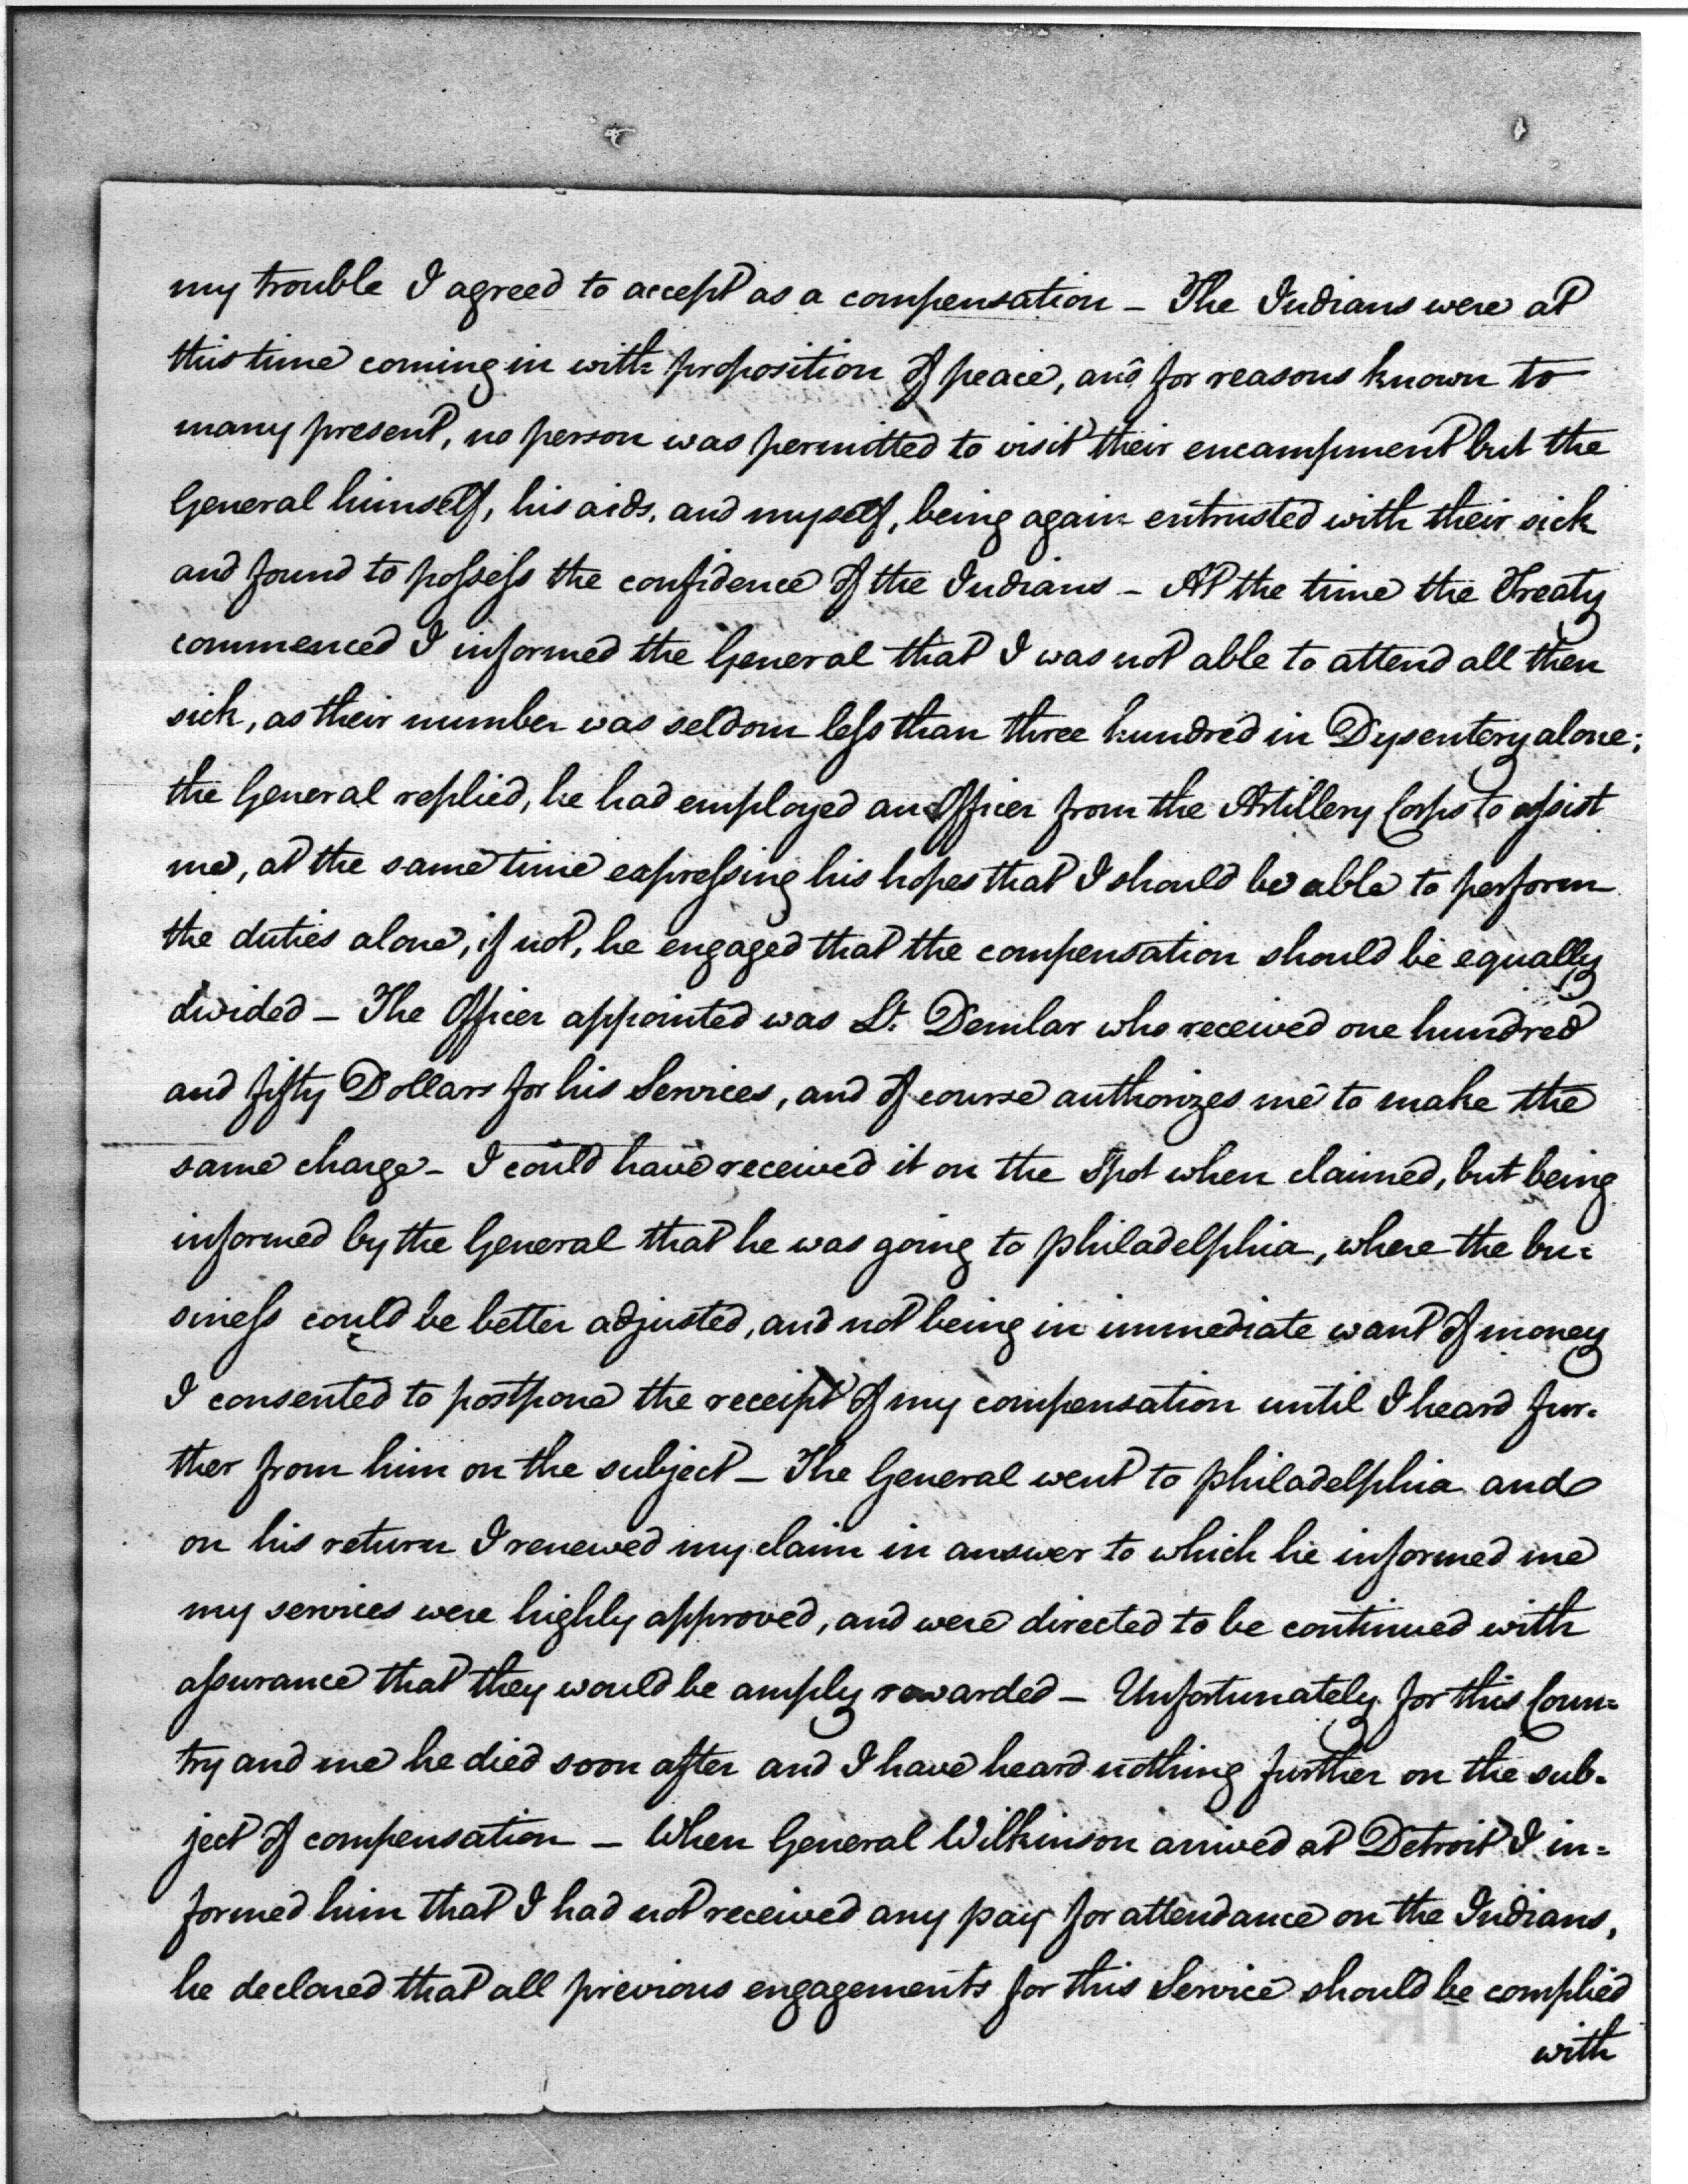 my trouble I agreed to accept as a compensation – The Indians were at
this time coming in with proposition of peace, and for reasons known to
many present, no person was permitted to visit their encampment but the
General himself, his aids, and myself, being again entrusted with their sick
and found to possess the confidence of the Indians – At the time the Treaty
commenced I informed the General that I was not able to attend all then
sick, as their number was seldom less than three hundred in Dysentery alone;
the General replied, he had employed an Officer from the Artillery Corps to assist
me, at the same time expressing his hopes that I should be able to perform
the duties alone, if not, he engaged that the compensation should be equally
divided – The Officer appointed was Lt. Demlar who received one hundred
and fifty Dollars for his Services, and of course authorizes me to make the
same charge – I could have received it on the Spot when claimed, but being
informed by the General that he was going to philadelphia, where the bu=
siness could be better adjusted, and not being in immediate want of money
I consented to postpone the receipt of my compensation until I heard fur-
ther from him on the subject – The General went to philadelphia and
on his return I renewed my claim in answer to which he informed me
my services were highly approved, and were directed to be continued with
assurance that they would be amply rewarded – Unfortunately for this Coun=
try and me he died soon after and I have heard nothing further on the sub-
ject of compensation – When General Wilkinson arrived at Detroit I in=
formed him that I had not received any pay for attendance on the Indians,
he declared that all previous engagements for this Service should be complied
with